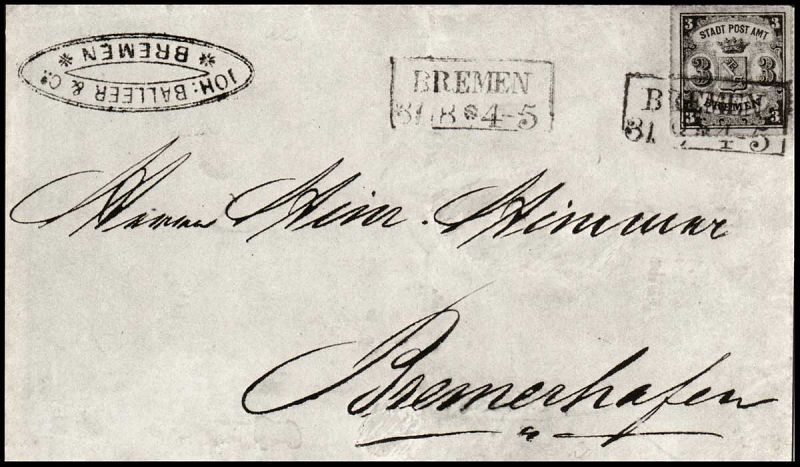 JOH: BALLEER & Co.
* BREMEN *
BREMEN
31 8 * 4-5
3 3
STADT POST AMT
3 3
BREMEN
3 3
BREMEN
31 8 * 4-5
Herrn Hinr. Wimmer
Bremerhafen